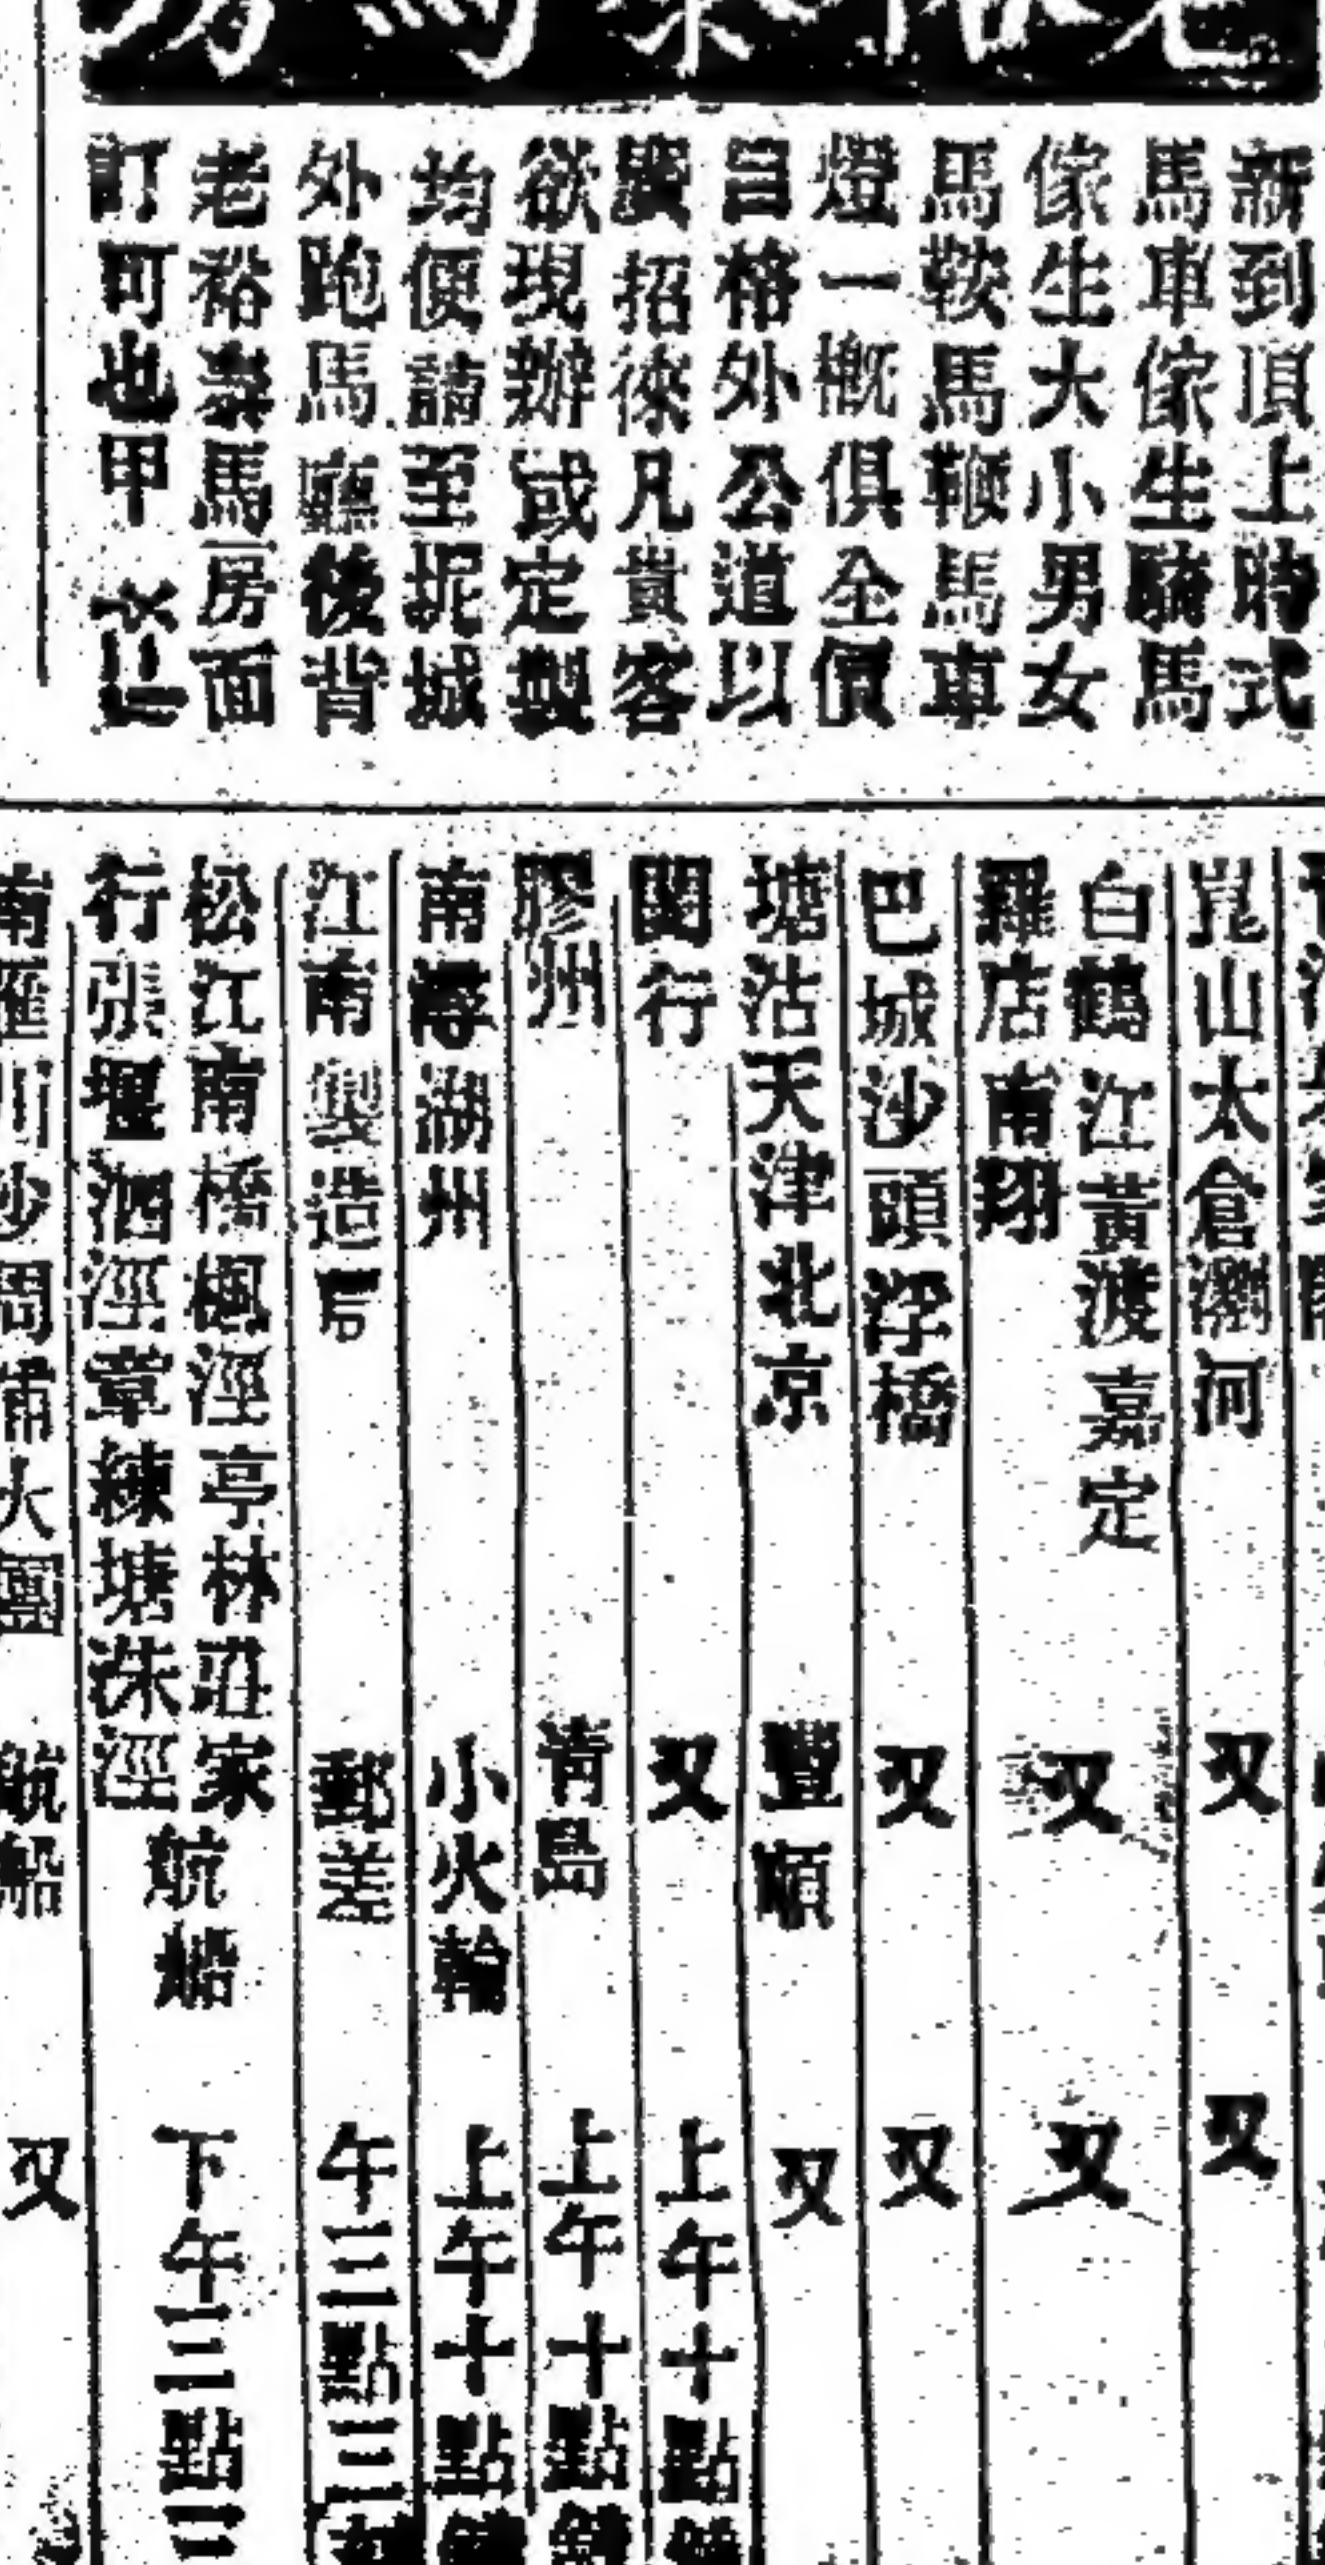 新到頂上時式
馬車傢生騎馬
傢生大小男女
馬鞍馬鞭馬車
燈一概俱全價
目格外公道以
廣招徠凡貴客
欲現辦或定製
均便請至坭城
外跑馬廳後背
老裕泰馬房面
訂可也甲
崑山太倉瀏河 又 又
白鶴江黃渡嘉定
羅店南翔 又 又
巴城沙頭浮橋 又 又
塘沽天津北京 豐順 又
閔行 又 上午十點鐘
膠州 青島 上午十點鐘
南潯湖州 小火輪 上午十點鐘
江南製造局 郵差 午三點三
松江南橋楓涇亭林莊家
行張堰泗涇章練塘洙涇 航船 下午三點三
南匯川沙周浦大團 航船 又